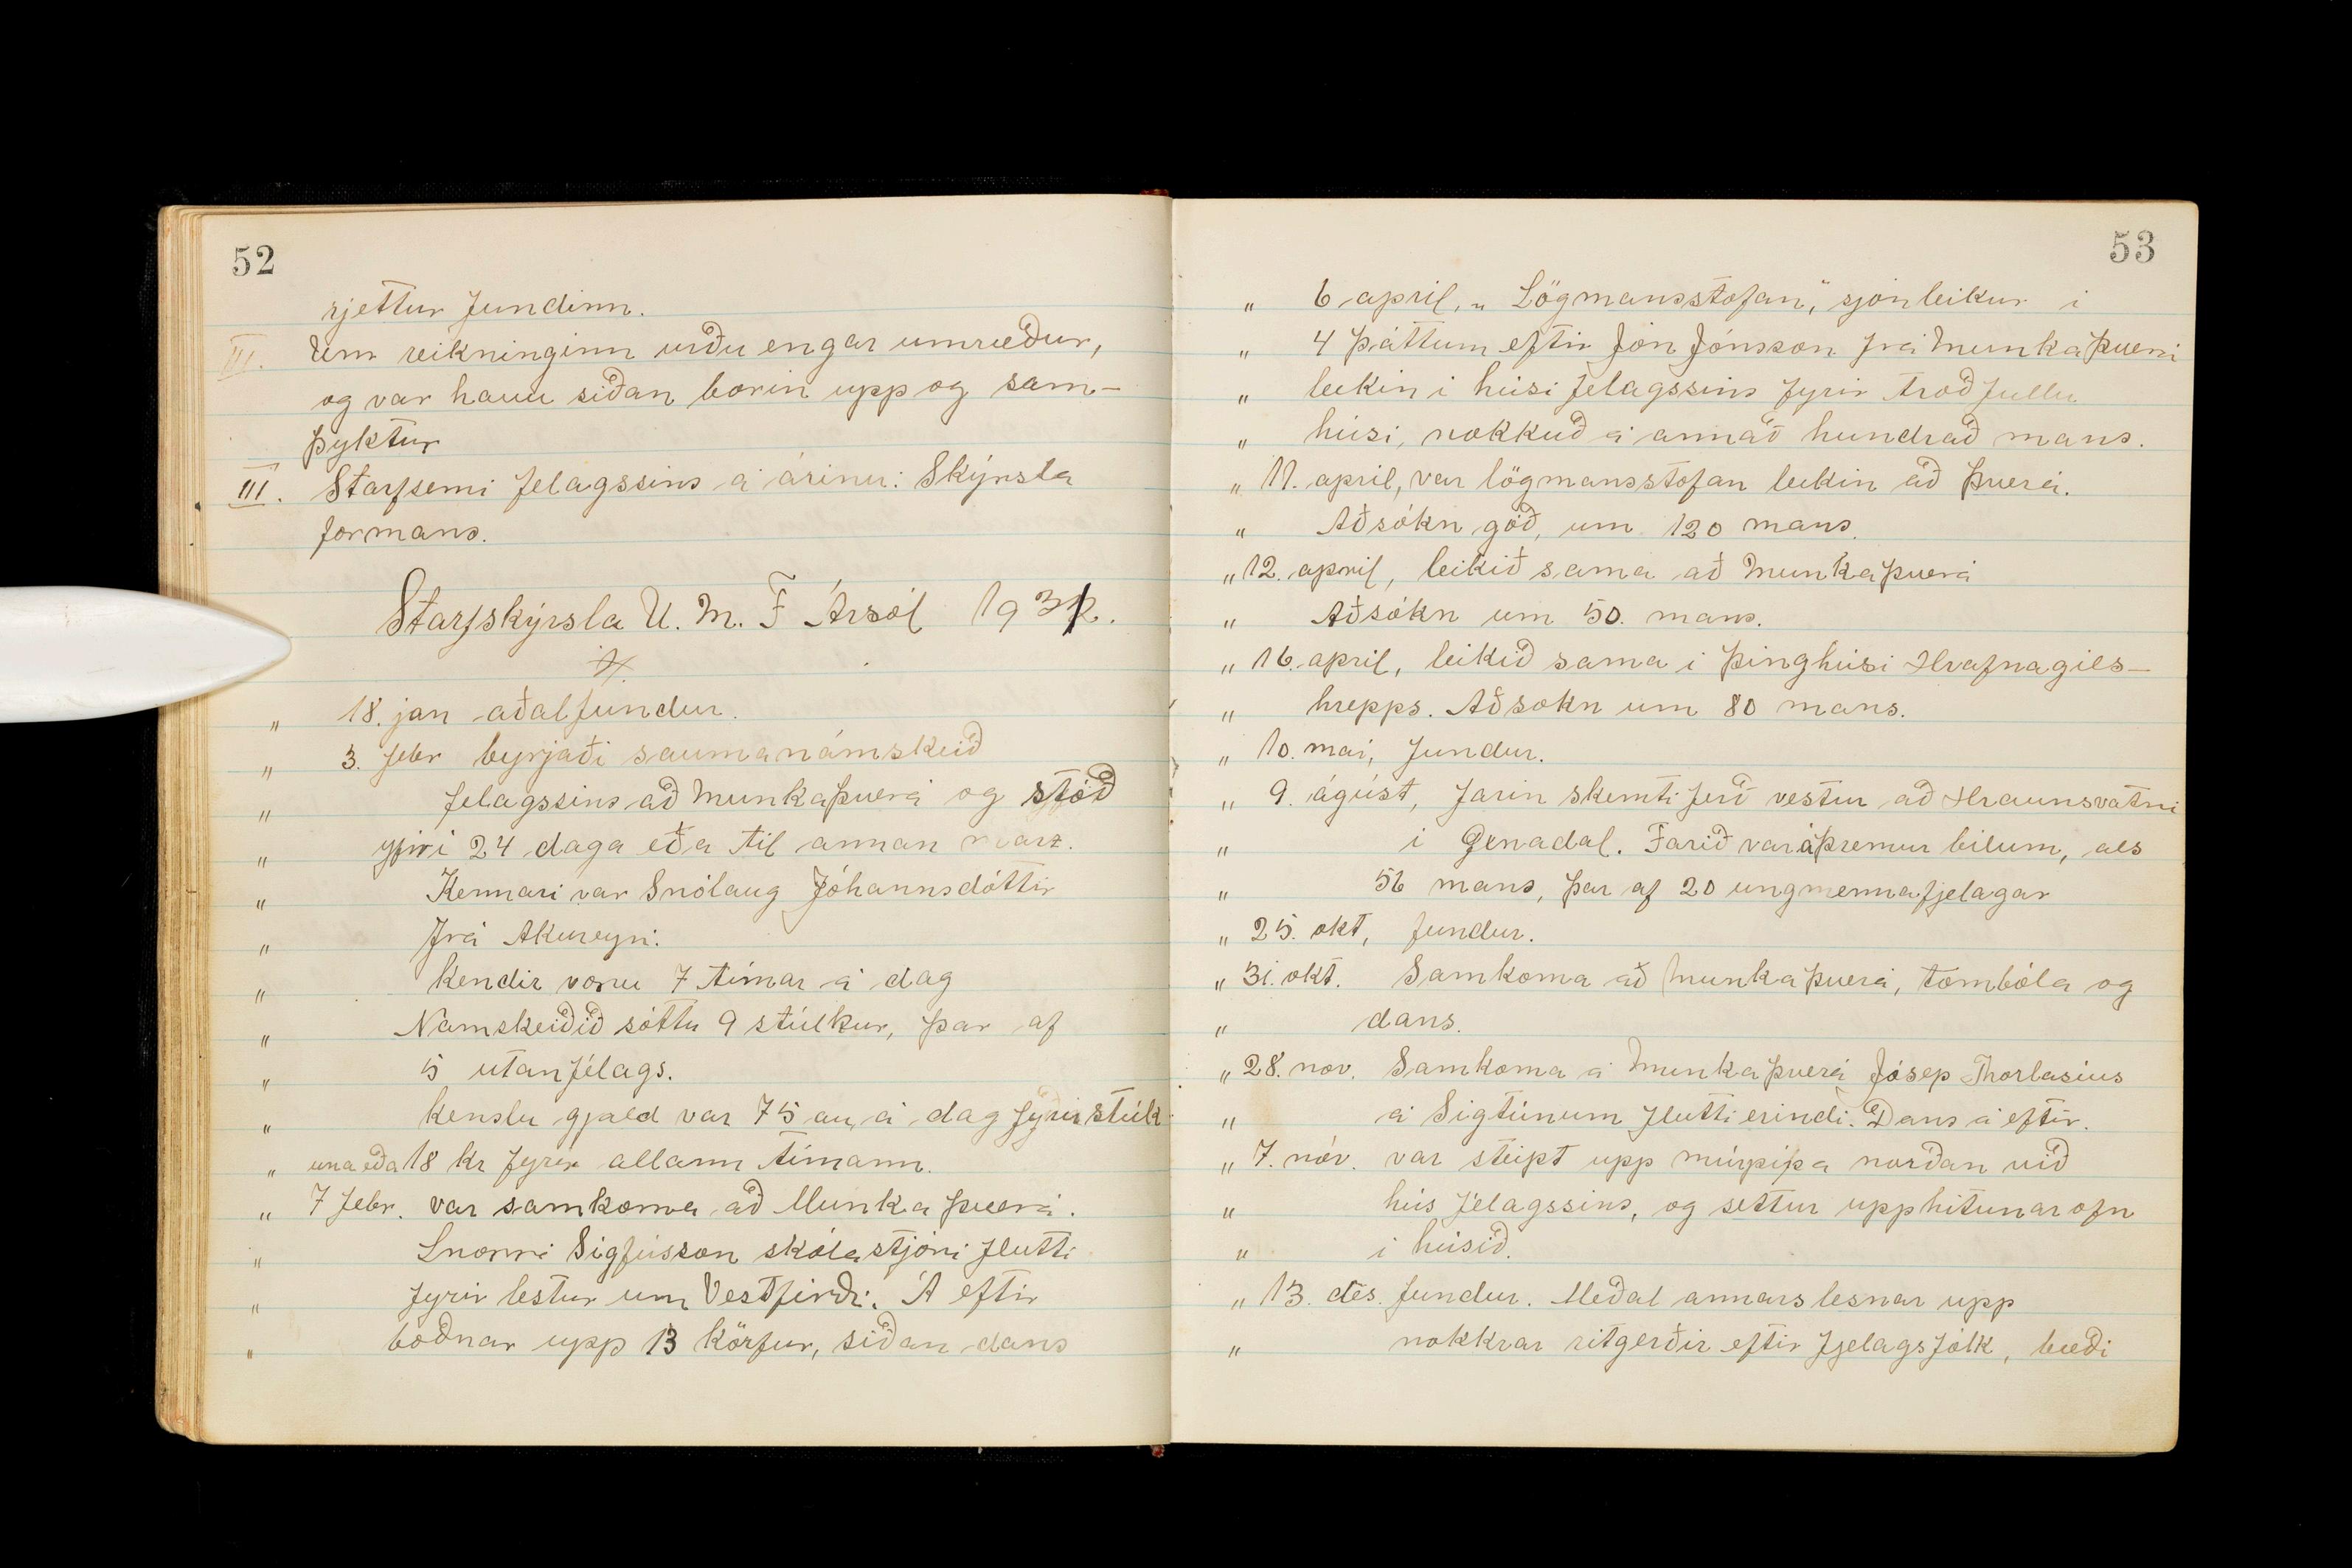 52
rjettur fundinn.
III. Um reikninginn urðu engar umræður,
og var hann siðan borin upp og sam-
þyktur
III. Starfsemi felagssins á árinu: Skýrsla
formans.
Starfskýrsla U. M. F Ársól 1931.
„ 18. jan aðalfundur.
„ 3. febr byrjaði saumanámskeið
„ felagssins að Munkaþverá og stóð
„ yfir i 24 daga eða til annan marz.
„ Kennari var Snólaug Jóhannsdóttir
„ frá Akureyri.
„ Kendir voru 7 tímar á dag
„ Namskeiðið sóttu 9 stúlkur, þar af
„ 5 utanfélags.
„ kenslu gjald var 75 au, á dag fyrir stúlk
„ una eða 18 kr fyrir allann tímann.
„ 7 febr. var samkoma að Munkaþverá.
„ Snorri Sigfússon skólastjóri flutti
„ fyrir lestur um Vestfirði. Á eftir
„ boðnar upp 13 körfur, siðan dans
53
„ 6 april, „Lögmansstofan," sjónleikur i
„ 4 þáttum eftir Jón Jónsson frá Munkaþveri
„ leikin i húsi felagssins fyrir troðfullu
„ húsi, nokkuð á annað hundrað mans.
„ 11. april, var lögmansstofan leikin að Þverá.
„ Aðsókn góð, um 120 mans.
„ 12. april, leikið sama að Munkaþverá
„ Aðsókn um 50. mans.
„ 16. april, leikið sama i þinghúsi Hrafnagils-
„ hrepps. Aðsokn um 80 mans.
„ 10. mai, fundur.
„ 9. ágúst, farin skemtiferð vestur að Hraunsvatni
„ i Öxnadal. Farið var á þremur bilum, als
„ 56 mans, þar af 20 ungmennafjelagar
„ 25. okt, fundur.
„ 31. okt. Samkoma að Munkaþverá, tombóla og
„ dans.
„ 28. nov. Samkoma á Munkaþverá Jósep Thorlasius
„ á Sigtúnum flutti erindi. Dans á eftir.
„ 7. nóv. var steipt upp múrpípa norðan við
„ hús félagssins, og settur upp hitunarofn
„ i húsið.
„ 13. des. fundur. Meðal annars lesnar upp
„ nokkrar ritgerðir eftir fjelagsfólk, bæði